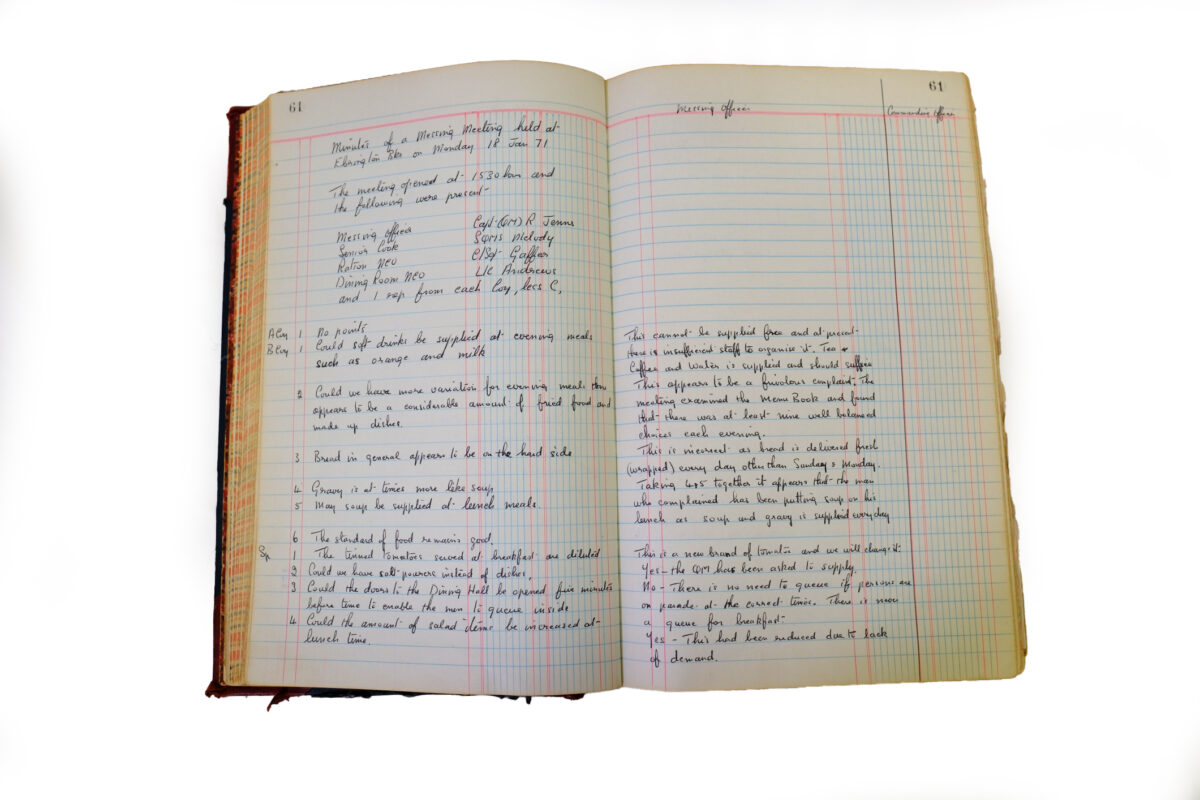 61
Minutes of a Messing Meeting held at
Ebrington Bks on Monday 18 Jan 71
The meeting opened at 1530 hrs and
the following were present-
Messing Officer Capt (QM) R Jenns
Senior Cook SQMS Melody
Ration NCO C/Sgt Gaffer
Dining Room NCO L/C Andrews
and 1 rep from each Coy, less C,
A Coy 1 No points
B Coy 1 Could soft drinks be supplied at evening meals
such as orange and milk
2 Could we have more variation for evening meals there
appears to be a considerable amount of fried food and
made up dishes.
3 Bread in general appears to be on the hard side
4 Gravy is at times more like soup
5 May soup be supplied at lunch meals.
6 The standard of food remains good.
Sp 1 The tinned tomatoes served at breakfast are diluted
2 Could we have salt pourers instead of dishes.
3 Could the doors to the Dining Hall be opened five minutes
before time to enable the men to queue inside
4 Could the amount of salad items be increased at
lunch time.
61
Messing Officer Commanding Officer
This cannot be supplied free and at present
there is insufficient staff to organise it. Tea &
Coffee and Water is supplied and should suffice
This appears to be a frivolous complaint. The
meeting examined the Menu Book and found
that there was at least nine well balanced
choices each evening.
This is incorrect as bread is delivered fresh
(wrapped) every day other than Sunday & Monday.
Taking 4&5 together it appears that the man
who complained has been putting soup on his
lunch as soup and gravy is supplied everyday
This is a new brand of tomato and we will change it
Yes - the QM has been asked to supply.
No - There is no need to queue if persons are
on parade at the correct times. There is never
a queue for breakfast-
Yes - This had been reduced due to lack
of demand.